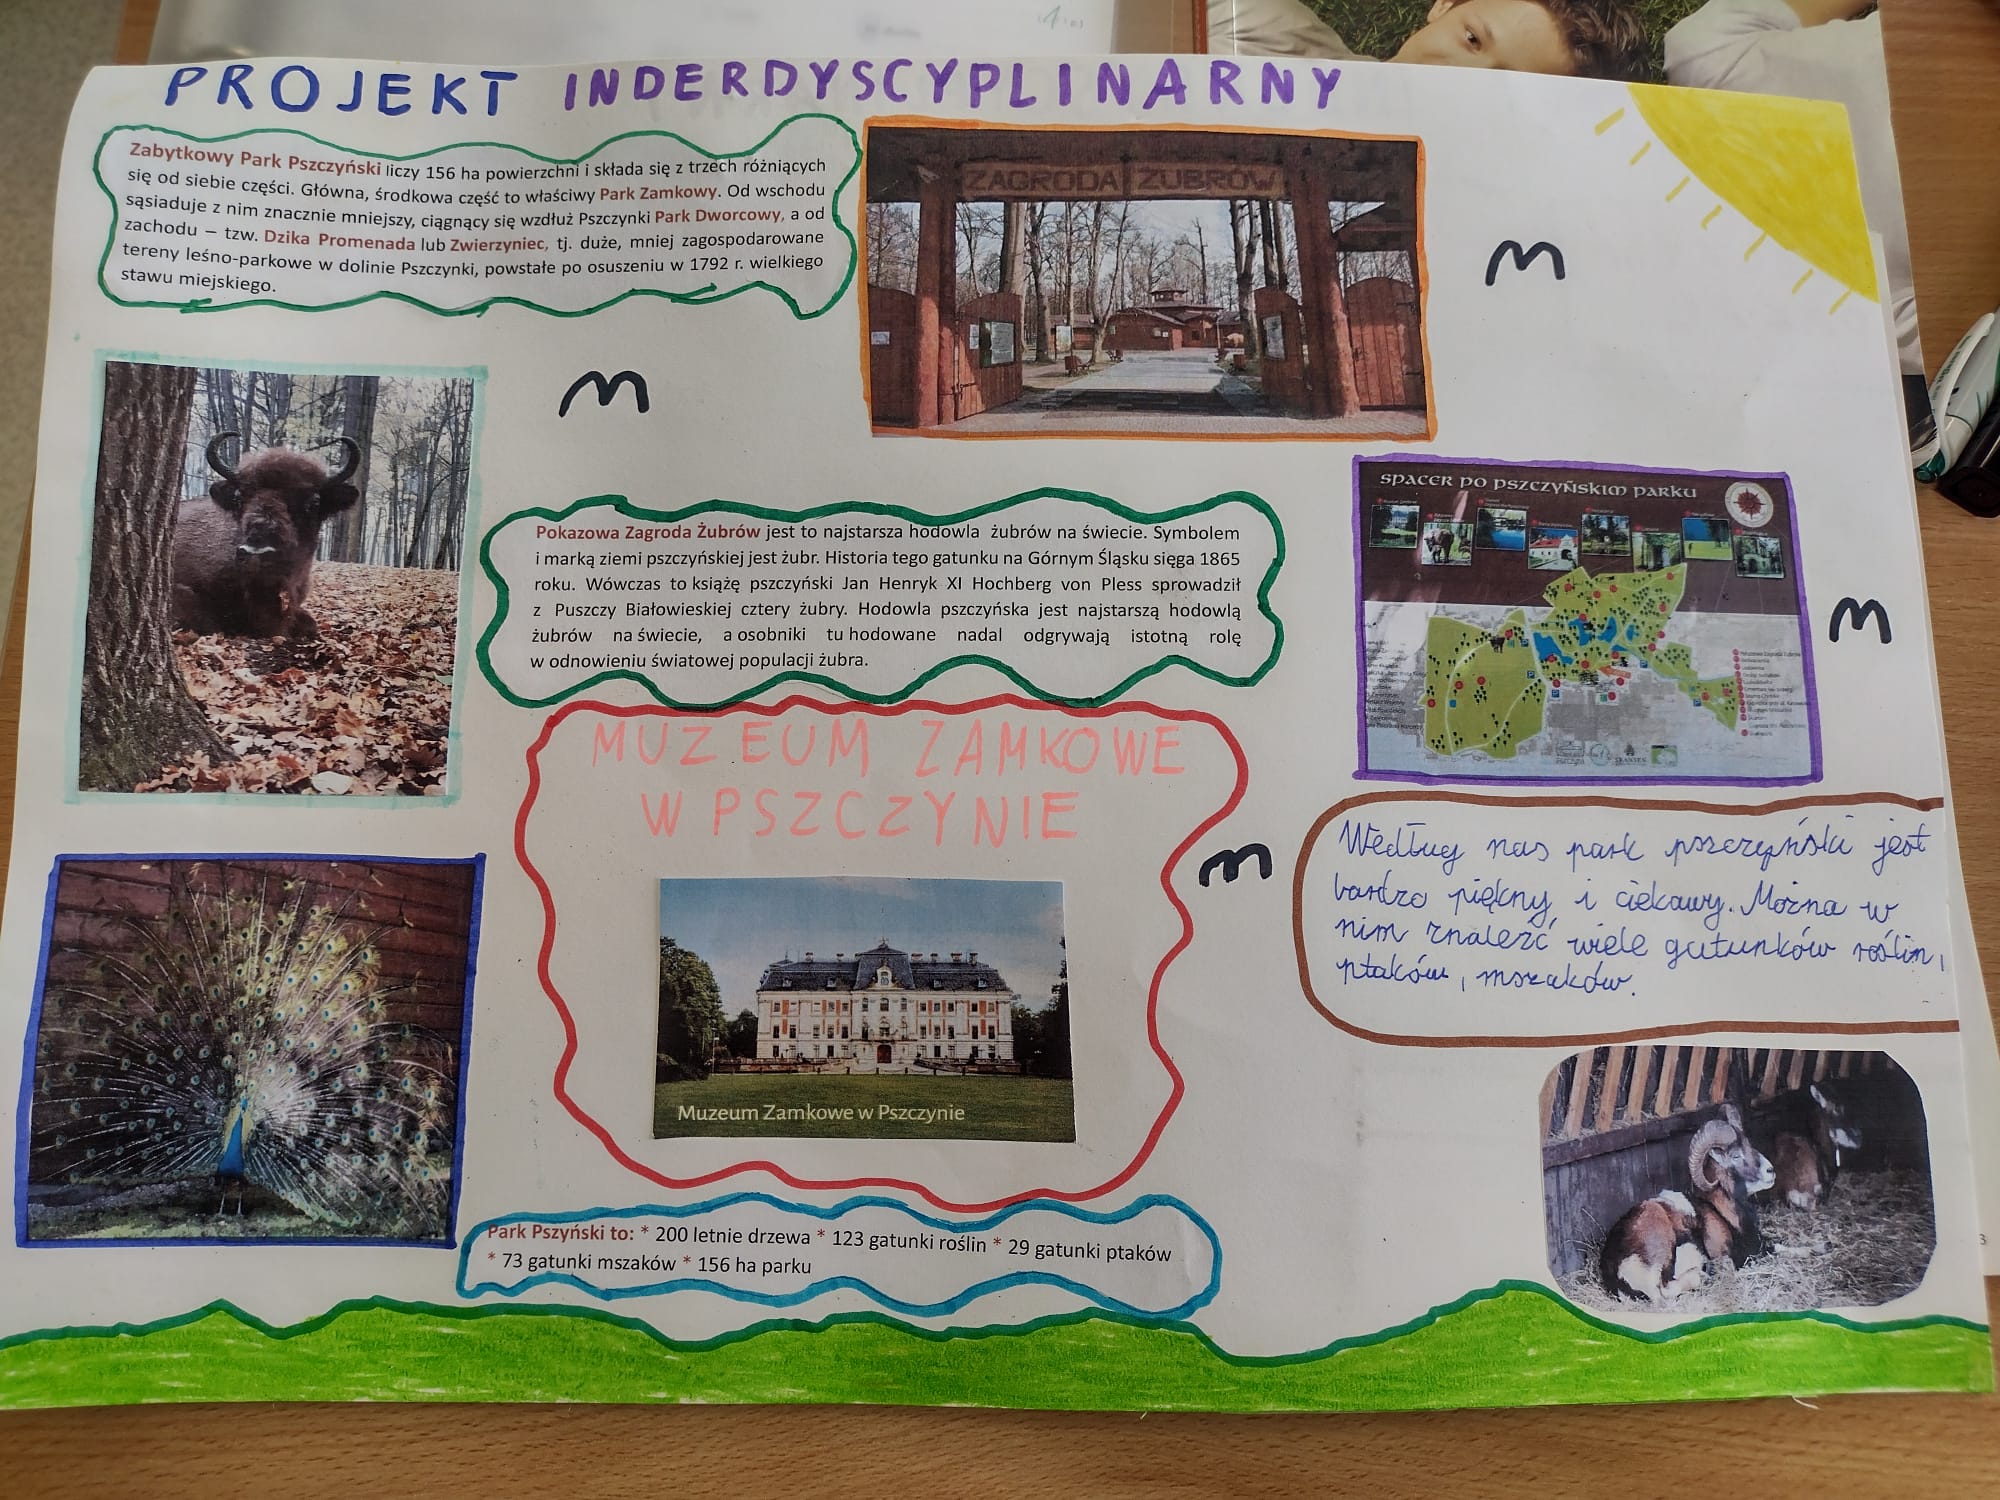 PROJEKT INDERDYSCYPLINARNY
Zabytkowy Park Pszczyński liczy 156 ha powierzchni i składa się z trzech różniących
się od siebie części. Główna, środkowa część to właściwy Park Zamkowy. Od wschodu
sąsiaduje z nim znacznie mniejszy, ciągnący się wzdłuż Pszczynki Park Dworcowy, a od
zachodu – tzw. Dzika Promenada lub Zwierzyniec, tj. duże, mniej zagospodarowane
tereny leśno-parkowe w dolinie Pszczynki, powstałe po osuszeniu w 1792 r. wielkiego
stawu miejskiego.
ZAGRODA ŻUBRÓW
Pokazowa Zagroda Żubrów jest to najstarsza hodowla żubrów na świecie. Symbolem
i marką ziemi pszczyńskiej jest żubr. Historia tego gatunku na Górnym Śląsku sięga 1865
roku. Wówczas to książę pszczyński Jan Henryk XI Hochberg von Pless sprowadził
z Puszczy Białowieskiej cztery żubry. Hodowla pszczyńska jest najstarszą hodowlą
żubrów na świecie, a osobniki tu hodowane nadal odgrywają istotną rolę
w odnowieniu światowej populacji żubra.
SPACER PO PSZCZYŃSKIM PARKU
MUZEUM ZAMKOWE
W PSZCZYNIE
Muzeum Zamkowe w Pszczynie
Według nas park pszczyński jest
bardzo piękny i ciekawy. Można w
nim znaleźć wiele gatunków roślin,
ptaków, mszaków.
Park Pszyński to: * 200 letnie drzewa * 123 gatunki roślin * 29 gatunki ptaków
* 73 gatunki mszaków * 156 ha parku